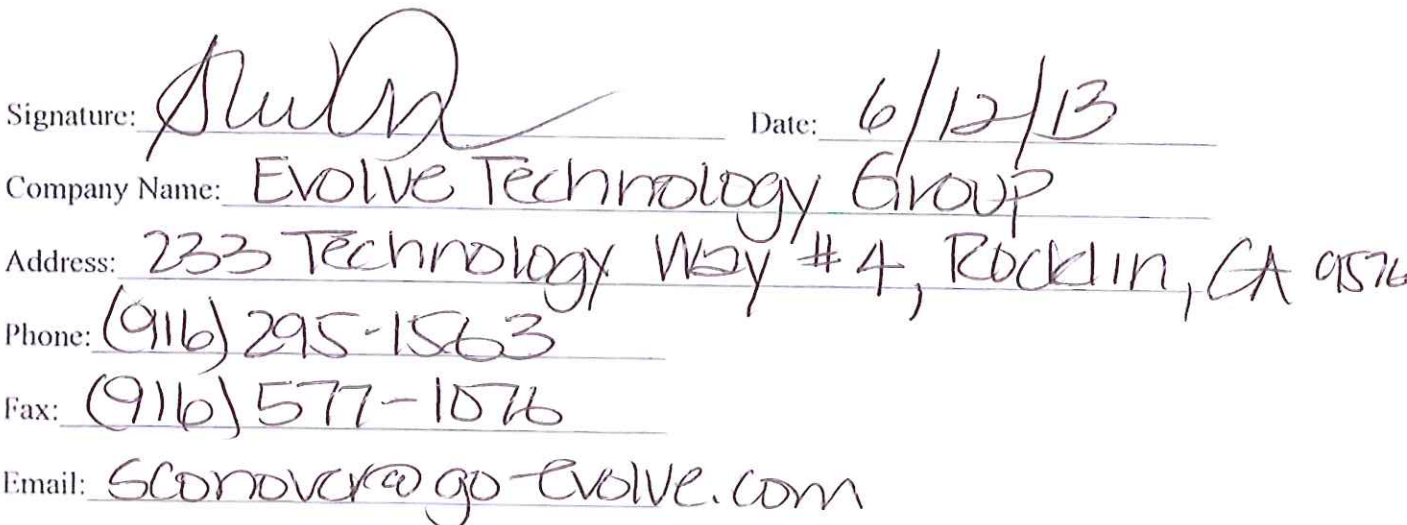 Signature: Date: 6/12/13
Company Name: Evolve Technology Group
Address: 233 Technology Way #4, Rocklin, CA 9576
Phone: (916) 295-1563
Fax: (916) 577-1076
Email: sconover@go-evolve.com